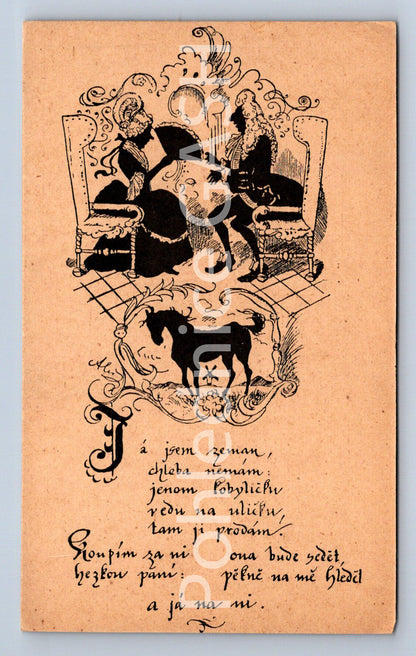 Já jsem zeman,
chleba nemam:
jenom kobyličku
vedu na uličku,
tam ji prodám.
Koupím za ni
hezkou páni:
ona bude sedět,
pěkně na mě hlěděl
a já na ni.
Pohlednice GASH